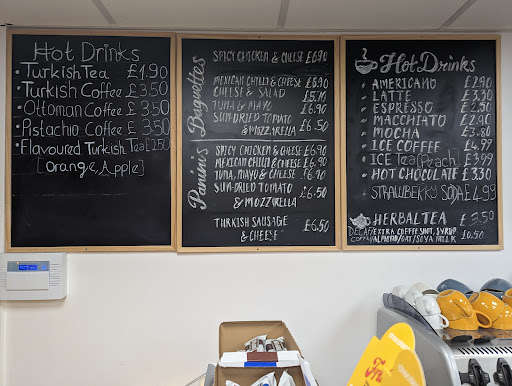 Hot Drinks
• Turkish Tea £1.90
• Turkish Coffee £3.50
• Ottoman Coffee £3.50
• Pistachio Coffee £3.50
• Flavoured Turkish Tea £2.50
[Orange, Apple]
Panini's / Baguettes
SPICY CHICKEN & CHEESE £6.90
MEXICAN CHILLI & CHEESE £6.90
CHEESE & SALAD £5.70
TUNA & MAYO £6.90
SUN-DRIED TOMATO £6.50
& MOZZARELLA
SPICY CHICKEN & CHEESE £6.90
MEXICAN CHILLI & CHEESE £6.90
TUNA, MAYO & CHEESE £6.90
SUN-DRIED TOMATO £6.50
& MOZZARELLA
TURKISH SAUSAGE £6.50
& CHEESE
Hot Drinks
• AMERICANO £2.90
• LATTE £3.30
• ESPRESSO £2.50
• MACCHIATO £2.90
• MOCHA £3.80
• ICE COFFEE £4.99
• ICE Tea (Peach) £3.99
• HOT CHOCOLATE £3.30
STRAWBERRY SODA £4.99
HERBAL TEA £2.50
DECAF EXTRA COFFE SHOT, SYRUP
COFFE ALMOND/OAT/SOYA MILK £0.50